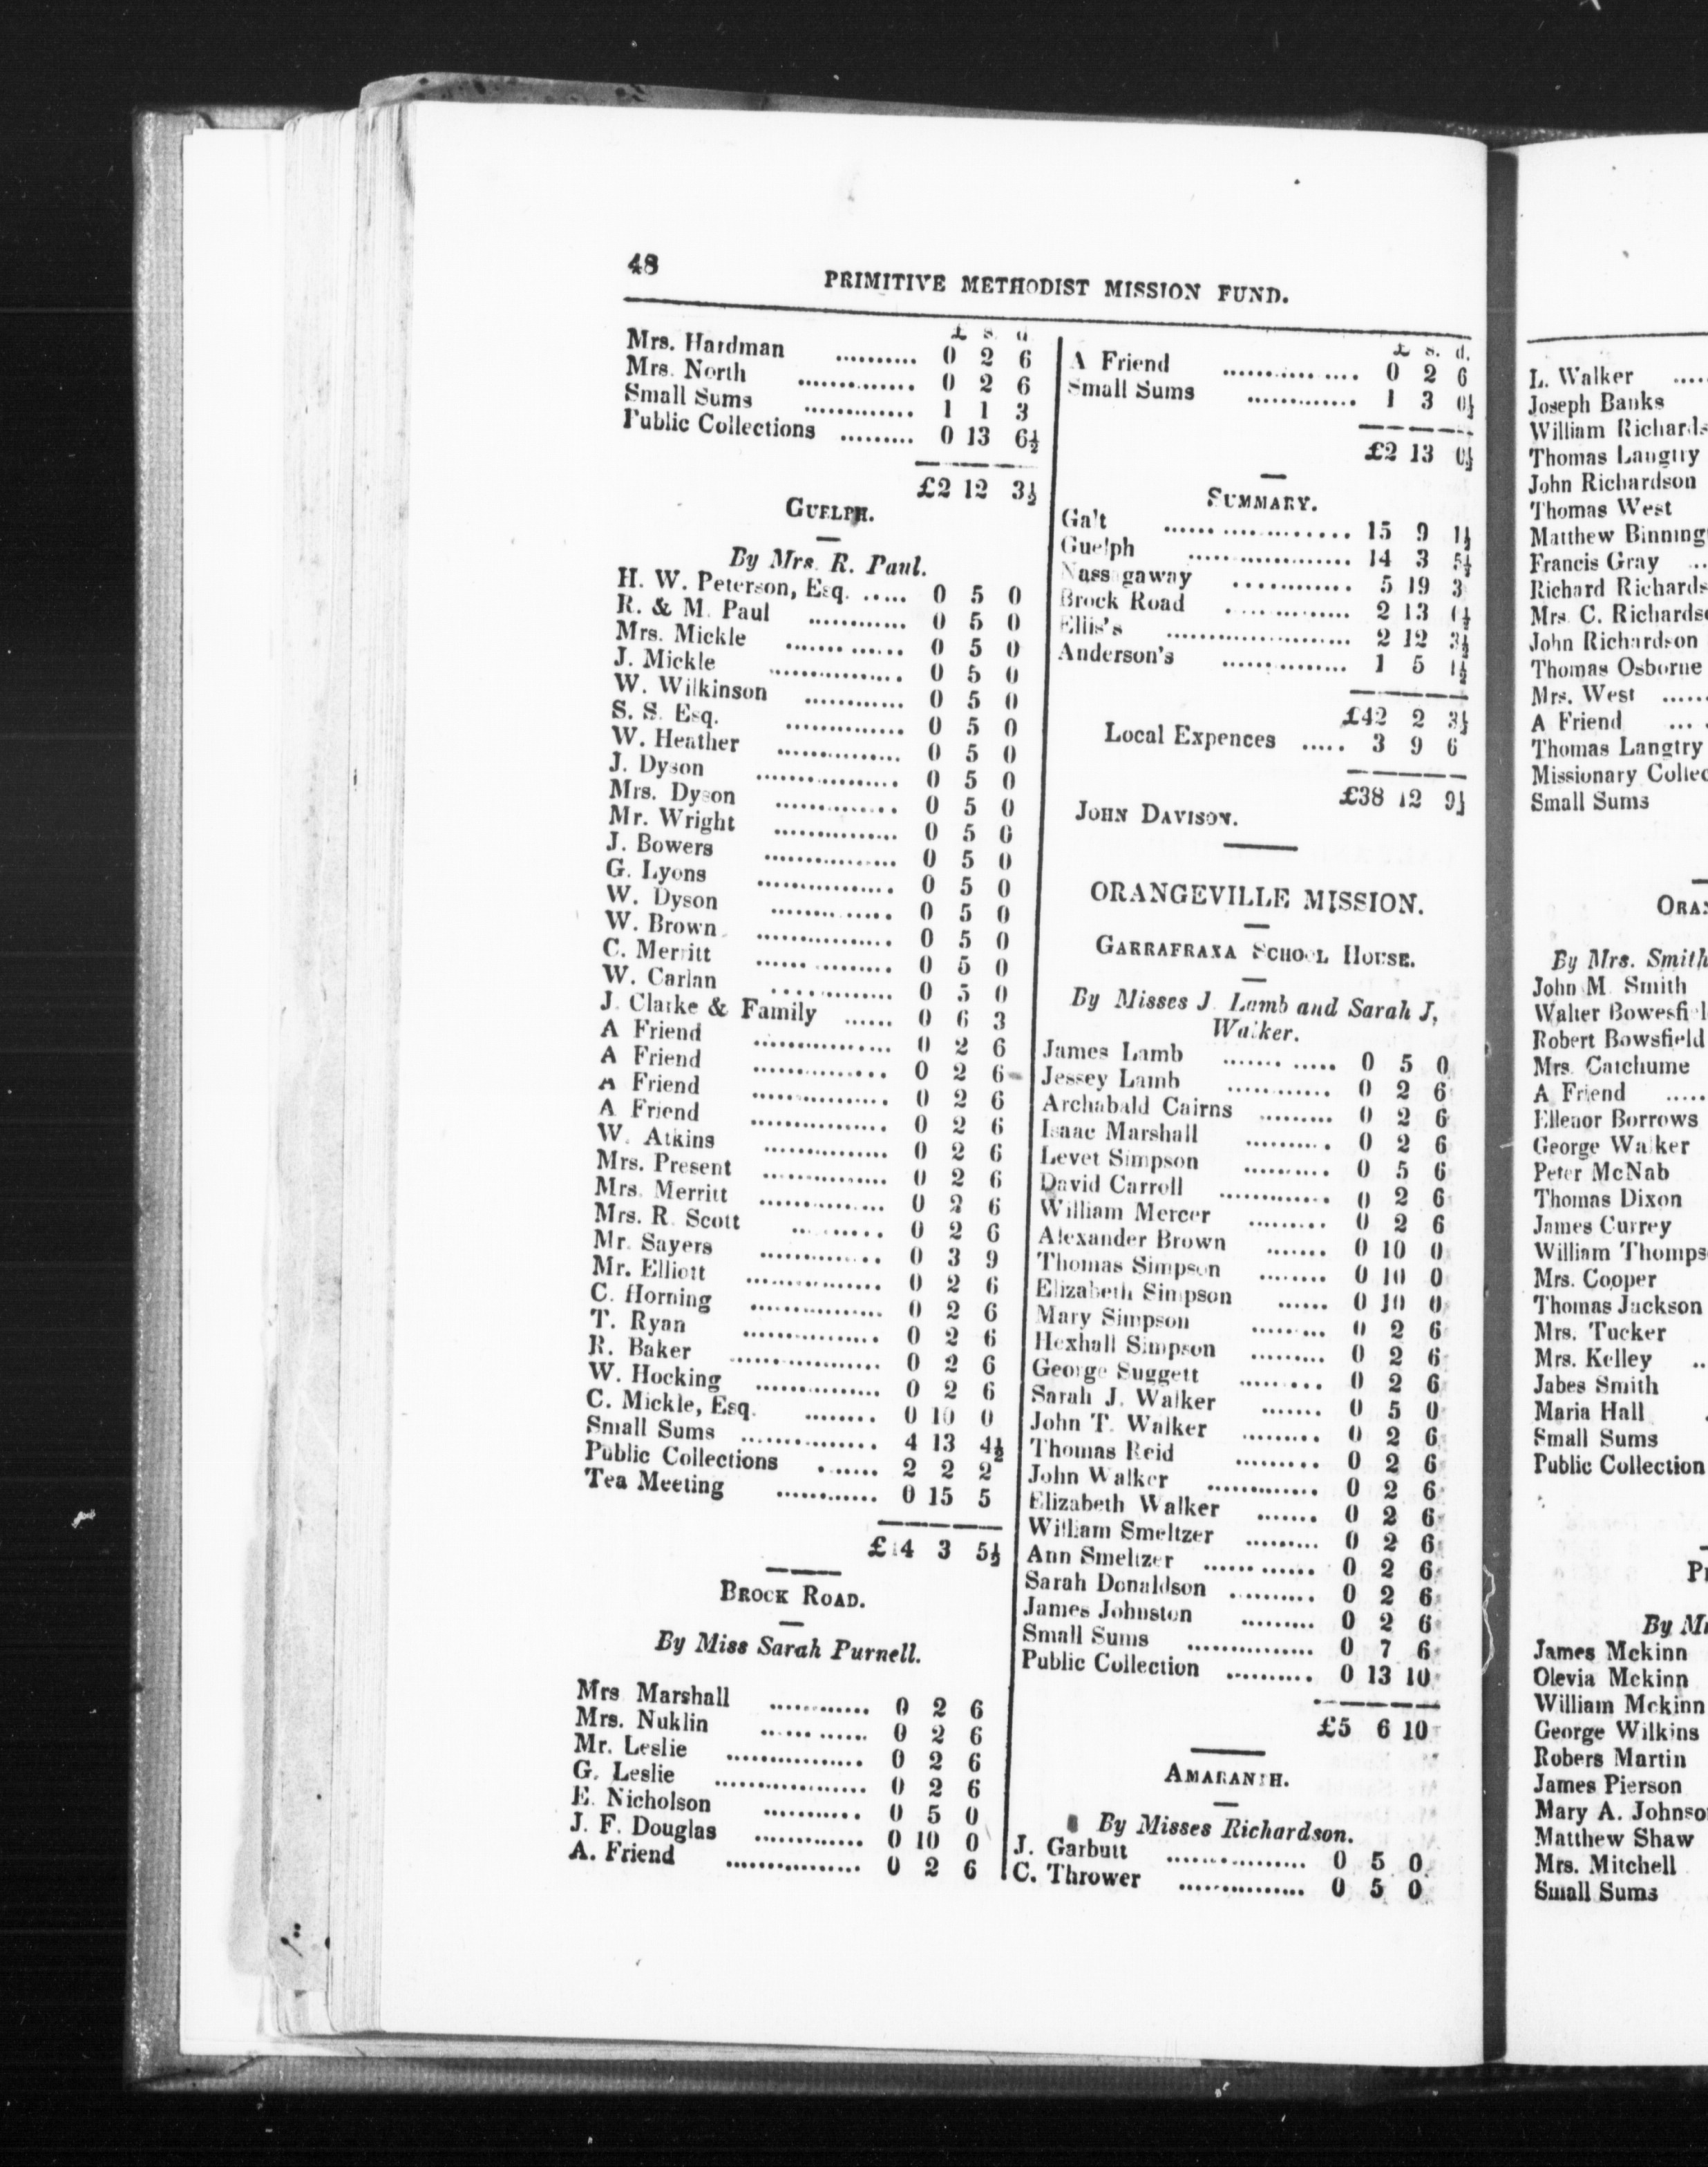 48
PRIMITIVE METHODIST MISSION FUND.
£ s. d
Mrs. Hardman .......... 0 2 6
Mrs. North .............. 0 2 6
Small Sums ............. 1 1 3
Public Collections ......... 0 13 6½
£2 12 3½
GUELPH.
By Mrs. R. Paul.
H. W. Peterson, Esq. ..... 0 5 0
R. & M. Paul ............ 0 5 0
Mrs. Mickle ............. 0 5 0
J. Mickle ................ 0 5 0
W. Wilkinson ............ 0 5 0
S. S. Esq. .............. 0 5 0
W. Heather ............. 0 5 0
J. Dyson ................ 0 5 0
Mrs. Dyson ............. 0 5 0
Mr. Wright .............. 0 5 0
J. Bowers ............... 0 5 0
G. Lyons ................ 0 5 0
W. Dyson ............. 0 5 0
W. Brown ................ 0 5 0
C. Merritt ............... 0 5 0
W. Carlan ............. 0 5 0
J. Clarke & Family ...... 0 6 3
A Friend ................ 0 2 6
A Friend ................ 0 2 6
A Friend ................ 0 2 6
A Friend ................ 0 2 6
W. Atkins ............... 0 2 6
Mrs. Present .............. 0 2 6
Mrs. Merritt .............. 0 2 6
Mrs. R. Scott .......... 0 2 6
Mr. Sayers .............. 0 3 9
Mr. Elliott ............... 0 2 6
C. Horning ............... 0 2 6
T. Ryan ................ 0 2 6
R. Baker ................ 0 2 6
W. Hocking .............. 0 2 6
C. Mickle, Esq. ........ 0 10 0
Small Sums ............... 4 13 4½
Public Collections ....... 2 2 2
Tea Meeting ............ 0 15 5
£14 3 5½
BROCK ROAD.
By Miss Sarah Purnell.
Mrs Marshall ............ 0 2 6
Mrs. Nuklin ............ 0 2 6
Mr. Leslie ................ 0 2 6
G. Leslie .................. 0 2 6
E. Nicholson ........... 0 5 0
J. F. Douglas ............. 0 10 0
A. Friend ................ 0 2 6
£ s. d.
A Friend ................ 0 2 6
Small Sums ............. 1 3 0½
£2 13 0½
SUMMARY.
Galt ...................... 15 9 1½
Guelph .................. 14 3 5½
Nassagaway ............. 5 19 3
Brock Road .............. 2 13 0½
Ellis's ....................... 2 12 3½
Anderson's ............... 1 5 1½
£42 2 3½
Local Expences ..... 3 9 6
£38 12 9½
JOHN DAVISON.
ORANGEVILLE MISSION.
GARRAFRAXA SCHOOL HOUSE.
By Misses J. Lamb and Sarah J,
Walker.
James Lamb ............ 0 5 0
Jessey Lamb ............ 0 2 6
Archabald Cairns ......... 0 2 6
Isaac Marshall .......... 0 2 6
Levet Simpson .......... 0 5 6
David Carroll ............. 0 2 6
William Mercer ......... 0 2 6
Alexander Brown ....... 0 10 0
Thomas Simpson ........ 0 10 0
Elizabeth Simpson ...... 0 10 0
Mary Simpson ......... 0 2 6
Hexhall Simpson ......... 0 2 6
George Suggett ......... 0 2 6
Sarah J. Walker ....... 0 5 0
John T. Walker ......... 0 2 6
Thomas Reid .......... 0 2 6
John Walker ............. 0 2 6
Elizabeth Walker ....... 0 2 6
William Smeltzer ......... 0 2 6
Ann Smeltzer ............ 0 2 6
Sarah Donaldson .......... 0 2 6
James Johnston ......... 0 2 6
Small Sums ............... 0 7 6
Public Collection .......... 0 13 10
£5 6 10
AMARANTH.
By Misses Richardson.
J. Garbutt ................ 0 5 0
C. Thrower ............... 0 5 0
L. Walker ....
Joseph Banks
William Richards
Thomas Langtry
John Richardson
Thomas West
Matthew Binning
Francis Gray ..
Richard Richards
Mrs. C. Richards
John Richardson
Thomas Osborne
Mrs. West .....
A Friend ...
Thomas Langtry
Missionary Collec
Small Sums
ORAN
By Mrs. Smith
John M. Smith
Walter Bowesfiel
Robert Bowsfield
Mrs. Catchume
A Friend .....
Elleaor Borrows
George Walker
Peter McNab
Thomas Dixon
James Currey
William Thomps
Mrs. Cooper
Thomas Jackson
Mrs. Tucker
Mrs. Kelley ..
Jabes Smith
Maria Hall
Small Sums
Public Collection
By
James Mckinn
Olevia Mckinn
William Mckinn
George Wilkins
Robers Martin
James Pierson
Mary A. Johnso
Matthew Shaw
Mrs. Mitchell
Small Sums